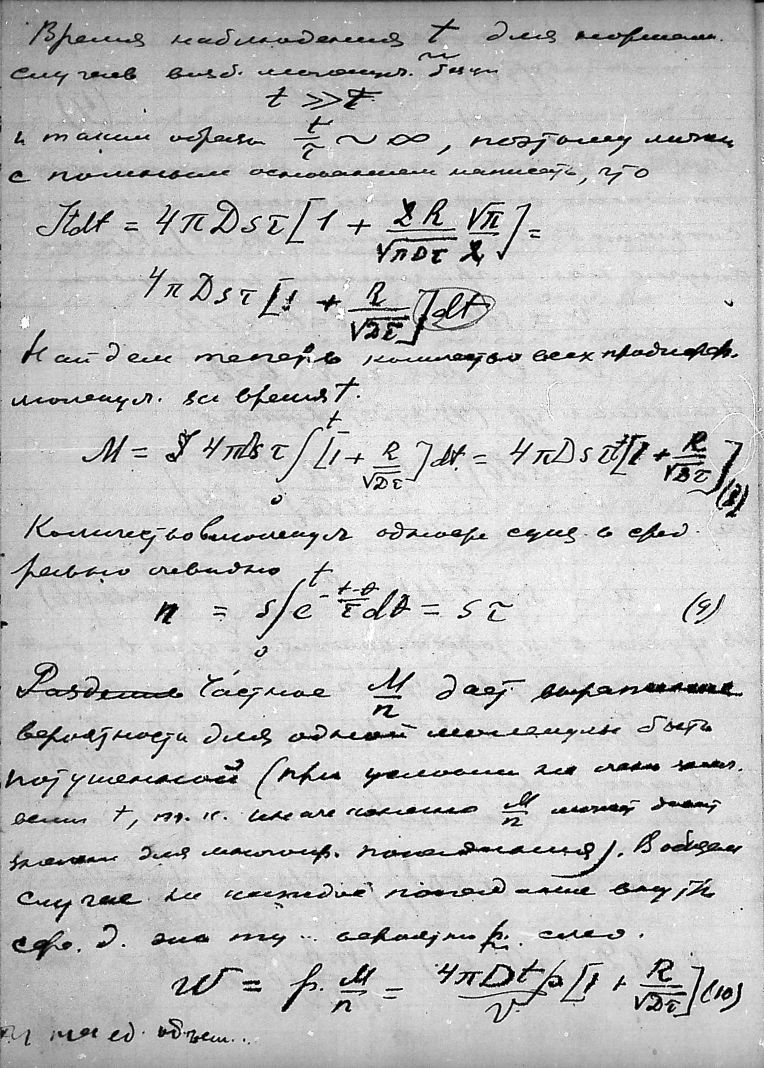 Время наблюдения t для нормальн.
случаев возб. молекул.
t >> τ
и таким образом t/τ ~ ∞, поэтому можем
с полным основанием написать, что
Itdt = 4πDsτ[1 + 2R/√πDτ √π/2] =
4πDsτ[1 + R/√Dτ]dt
Найдем теперь количество всех продифф.
молекул. за время t.
M = 4πDsτ ∫₀ᵗ [1 + R/√Dτ]dt = 4πDsτt[1 + R/√Dτ] (8)
Количество молекул одновр. сущ. в сред.
равно очевидно
n = s∫₀ᵗ e^(-(t-θ)/τ) dθ = sτ (9)
Частное M/n дает выражение
вероятности для одной молекулы быть
потушенной (при условии не очень
t, т. к. иначе конечно M/n может дать
для многокр. попадания). В общем
случае не каждое попадание внутрь
сфер. д. вероятн. p. след.
W = p. M/n = 4πDt p/v [1 + R/√Dτ] (10)
на ед. объем..